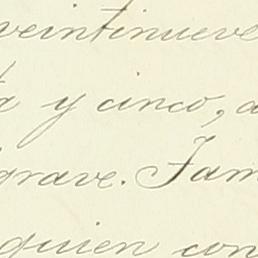 veintinueve
a y cinco, a
grave. Fam
quien con